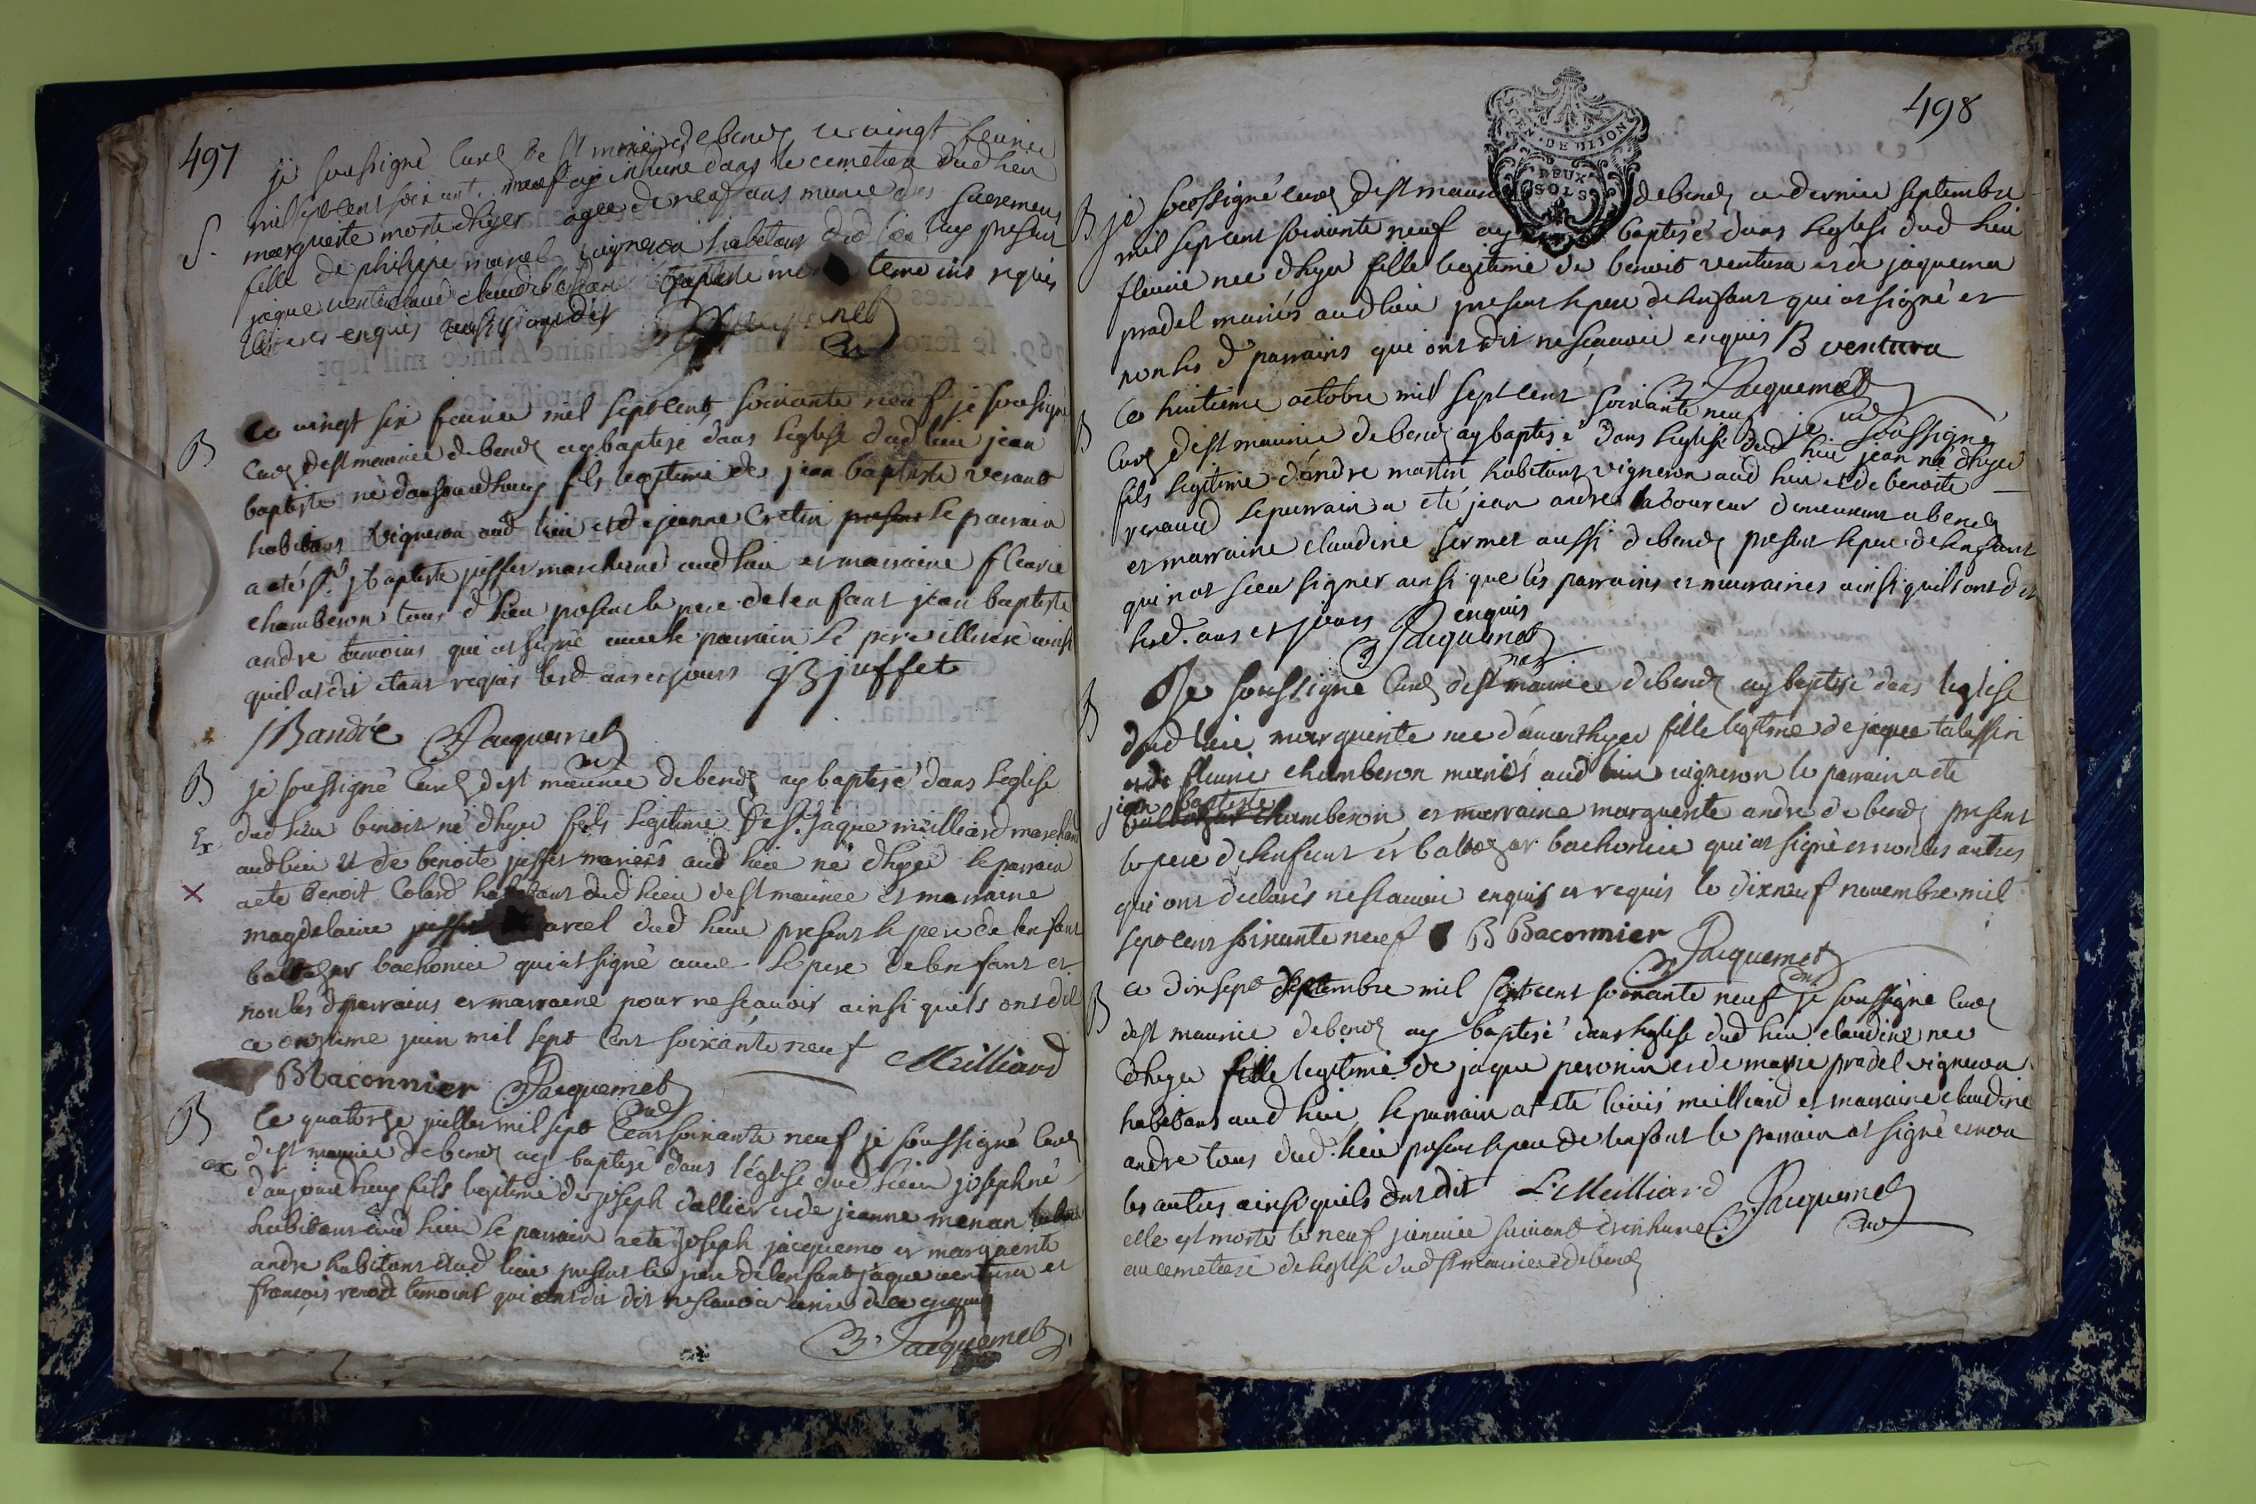 497
je soussigné curé de st morice debenos ce vingt fevrier
mil sept cent soixante neuf ay inhumé dans le cemetiere dud lieu
S. marguerite morte dhyer agée de neuf ans munie des sacremens
fille de philippe morel vigneron habitant dud lieu present
jaque ventura baptiste temoins requis
enquis
Jacquemet
B ce vingt six fevrier mil sept cent soixante neuf je soussigné
curé dest maurice debenos ay baptisé dans leglise dud lieu jean
baptiste né daujourdhuy fils legitime de jean baptiste verand
habitant vigneron aud lieu et de jeanne Cretin present le parrain
a eté sr jbaptiste juffet marchand aud lieu et marraine fleurie
chamberon tous d lieu present le pere de lenfant jean baptiste
andre temoins qui at signé avec le parrain le pere illiteré ainsi
quil at dit etant requis lesd. ans et jours JB juffet
JBandré Jacquemet
curé
B je soussigné curé dest maurice debenos ay baptisé dans leglise
Ex dud lieu benoit né dhyer fils legitime de Sr. Jaque meilliard marchand
aud lieu et de benoite juffet mariés aud lieu né dhyer le parrain
X a eté benoit Colard habitant dud lieu de st maurice et marraine
magdelaine juffet marcel dud lieu present le pere de lenfant
baltazar bachonier qui at signé avec le pere de lenfant et
non lesd parrains et marraine pour ne scavoir ainsi quils ont dit
ce onzieme juin mil sept cent soixante neuf Meilliard
BBaconnier Jacquemet
curé
B le quatorze juillet mil sept cent soixante neuf je soussigné curé
ex dest maurice debenos ay baptisé dans léglise dud lieu joseph né
daujourdhuy fils legitime de joseph dallier et de jeanne menan
habitans aud lieu le parrain a eté joseph jacquemo et marguerite
andre habitans dud lieu present le pere de lenfant jaque ventura et
francois renod temoins qui ont dit ne scavoir ecrire de ce enquis
B. Jacquemet
498
GEN. DE DIJON
DEUX SOLS
B je soussigné curé dest maurice debenos ce dernier septembre
mil sept cent soixante neuf ay baptisé dans leglise dud lieu
fleurie née dhyer fille legitime de benoit ventura et de jaquema
pradel mariés aud lieu present le pere de lenfant qui at signé et
non les d parrains qui ont dit ne scavoir enquis B ventura
B. Jacquemet
curé
B ce huitieme octobre mil sept cent soixante neuf je soussigné
curé dest maurice debenos ay baptisé dans leglise dud lieu jean né dhyer
fils legitime dandre martin habitant vigneron aud lieu et de benoite
renaud le parrain a eté jean andre laboureur demeurant a benos
et marraine claudine sermet aussi debenos present le pere de lenfant
qui n'at sceu signer ainsi que les parrains et marraines ainsi quils ont dit
lesd. ans et jours enquis
B Jacquemet
curé
B Je soussigné curé dest maurice debenos ay baptisé dans leglise
dud lieu marguerite née davanthyer fille legitime de jaque talassin
et de fleurie chamberon mariés aud lieu vigneron le parrain a eté
jean baptiste
baltazar chamberon et marraine marguerite andre de benos present
le pere de lenfant et baltazar bachonier qui at signé et non les autres
qui ont declarés ne scavoir enquis et requis le dixneuf novembre mil
sept cent soixante neuf B Baconnier
B. Jacquemet
curé
B ce dix sept septembre mil sept cent soixante neuf je soussigné curé
dest maurice debenos ay baptisé dans leglise dud lieu claudine née
dhyer fille legitime de jaque peronin et de marie pradel vigneron
habitans aud lieu, le parrain at eté louis meilliard et marraine claudine
andre tous dud. lieu present le pere de lenfant le parrain at signé et non
les autres ainsi quils ont dit L Meilliard
B. Jacquemet
curé
elle est morte le neuf janvier suivant et inhumée
au cemetiere de leglise dud st maurice debenos